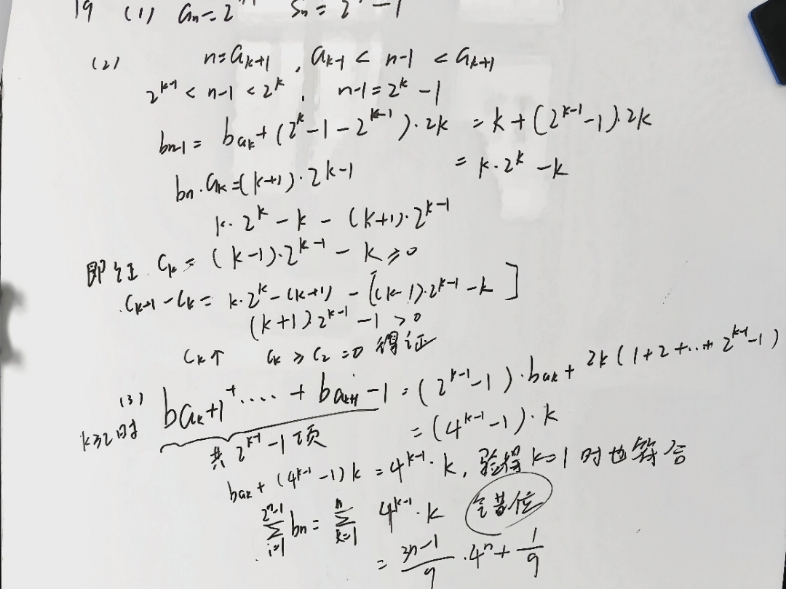 19 (1) aₙ=2ⁿ⁻¹ Sₙ=2ⁿ-1
(2) n=aₖ₊₁, aₖ₋₁ < n-1 < aₖ₊₁
2ᵏ⁻¹ < n-1 < 2ᵏ, n-1=2ᵏ-1
bₙ₋₁= baₖ+(2ᵏ-1-2ᵏ⁻¹)·2k =k+(2ᵏ⁻¹-1)·2k
bₙ·aₖ=(k+1)·2ᵏ⁻¹ =k·2ᵏ-k
k·2ᵏ-k-(k+1)·2ᵏ⁻¹
即证 Cₖ=(k-1)·2ᵏ⁻¹-k≥0
Cₖ₊₁-Cₖ= k·2ᵏ-(k+1)-[(k-1)·2ᵏ⁻¹-k]
(k+1)2ᵏ⁻¹-1>0
Cₖ↑ Cₖ≥C₂=0 得证
(3) k≥2时 baₖ+1+....+baₖ₊₁-1=(2ᵏ⁻¹-1)·baₖ+2k(1+2+...+2ᵏ⁻¹-1)
共2ᵏ⁻¹-1项 =(4ᵏ⁻¹-1)·k
baₖ+(4ᵏ⁻¹-1)k=4ᵏ⁻¹·k, 验得k=1时也符合
∑ᵢ₌₁^(2ⁿ-1) bₙ=∑ₖ₌₁ⁿ 4ᵏ⁻¹·k 错位
=(3n-1)/9·4ⁿ+1/9